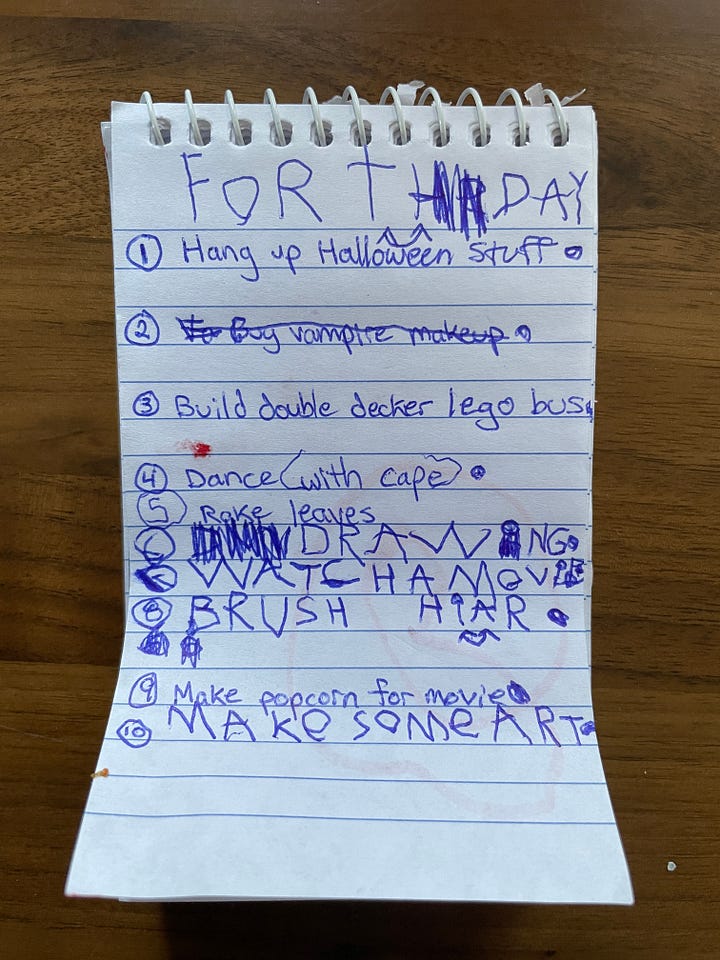 FOR TH DAY
1 Hang up Halloween stuff.
2 To Buy vampire makeup.
3 Build double decker lego bus.
4 Dance (with cape).
5 Rake leaves
6 DRAWING.
7 WATCH A MOVIE
8 BRUSH HIAR.
9 Make popcorn for movie.
10 MAKe SOMe ART.